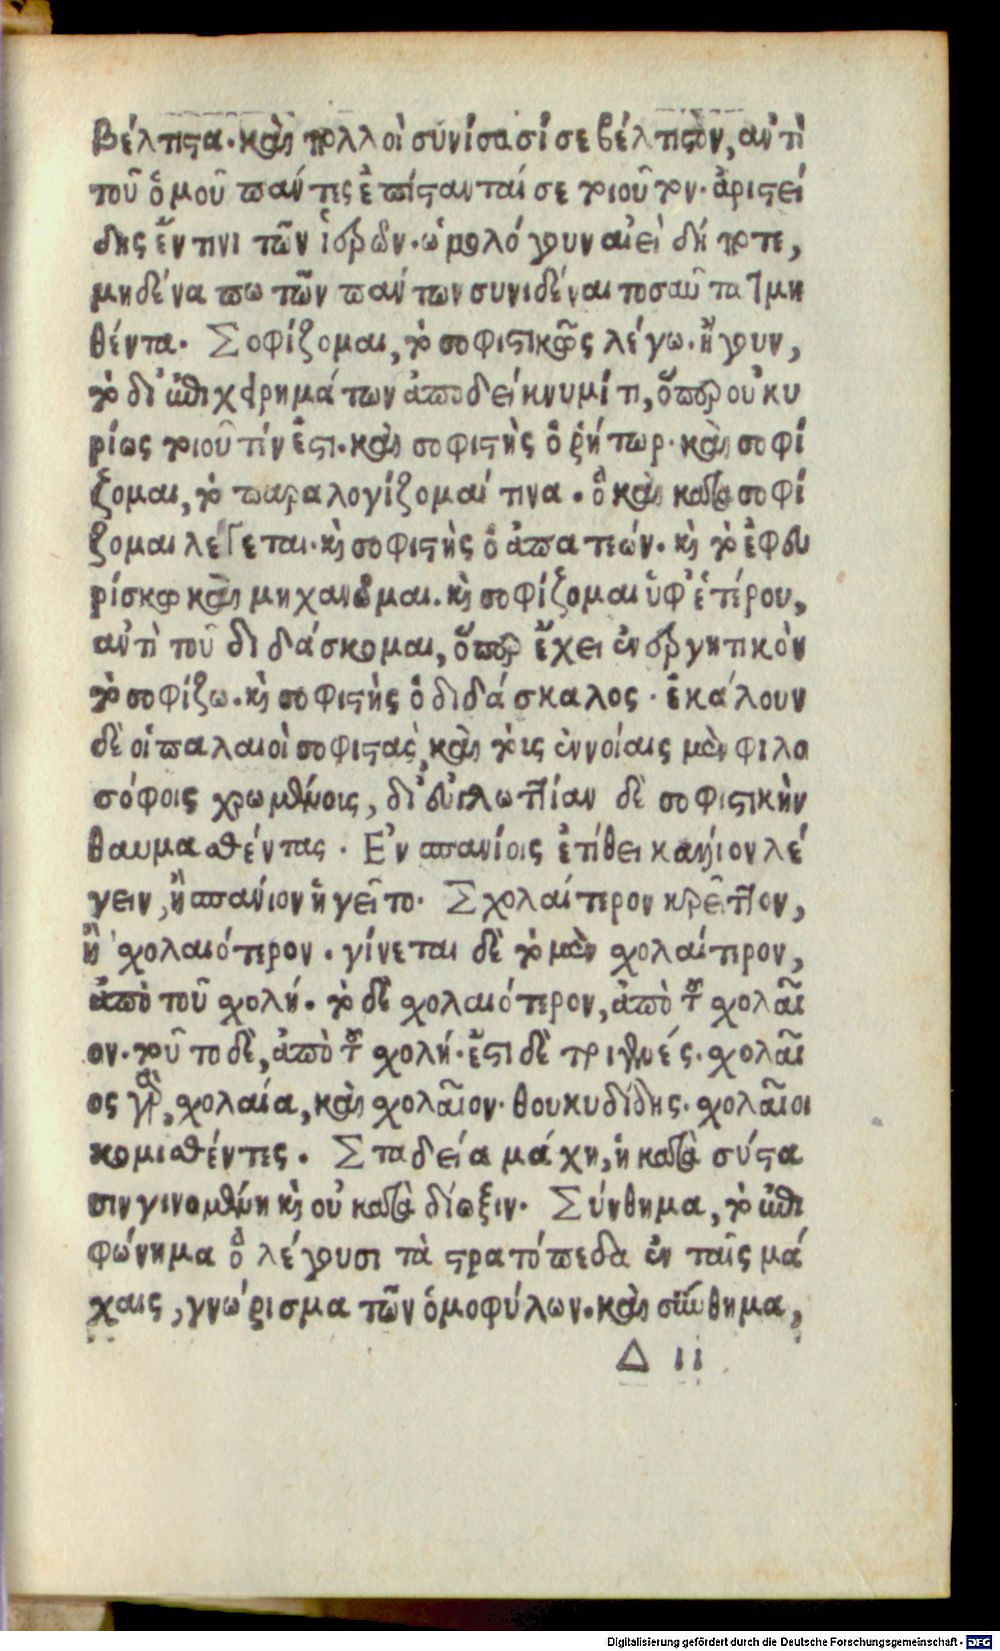 βέλτιστα. καὶ πολλοὶ συνίσασί σε βέλτιστον, ἀντὶ
τοῦ ὁμοῦ πάντες ἐπίστανταί σε τοιοῦτον. ἀριστεί
δης ἔν τινι τῶν ἱερῶν. ὡμολόγουν αἰεὶ δή ποτε,
μηδένα πω τῶν πάντων συνιδέναι τοσαῦτα τιμη
θέντα. Σοφίζομαι, τὸ σοφιστικῶς λέγω. ἤγουν,
τὸ δι' ἐπιχειρημάτων ἀποδείκνυμί τι, ὅπερ οὐ κυ
ρίως τοιοῦτόν ἐστι. καὶ σοφιστὴς ὁ ῥήτωρ. καὶ σοφί
ζομαι, τὸ παραλογίζομαί τινα. ὃ καὶ κατασοφί
ζομαι λέγεται. καὶ σοφιστὴς ὁ ἀπατεών. καὶ τὸ ἐφευ
ρίσκω καὶ μηχανῶμαι. καὶ σοφίζομαι ὑφ' ἑτέρου,
ἀντὶ τοῦ διδάσκομαι, ὅπερ ἔχει ἐνεργητικὸν
τὸ σοφίζω. καὶ σοφιστὴς ὁ διδάσκαλος. ἐκάλουν
δὲ οἱ παλαιοὶ σοφιστας, καὶ τοῖς ἐννοίαις μὲν φιλο
σόφοις χρωμένοις, δι' εὐγλωττίαν δὲ σοφιστικὴν
θαυμασθέντας. Ἐν σπανίοις ἐτίθει κάλλιον λέ
γειν, ἢ σπάνιον ἡγεῖτο. Σχολαίτερον κρεῖττον,
ἢ σχολαιότερον. γίνεται δὲ τὸ μὲν σχολαίτερον,
ἀπὸ τοῦ σχολή. τὸ δὲ σχολαιότερον, ἀπὸ τοῦ σχολαῖ
ον. τοῦτο δὲ, ἀπὸ τοῦ σχολή. ἔστι δὲ τριγενές. σχολαῖ
ος γὰρ, σχολαία, καὶ σχολαῖον. θουκυδίδης. σχολαῖοι
κομισθέντες. Σταδεία μάχη, ἡ κατὰ σύστα
σιν γινομένη καὶ οὐ κατὰ δίωξιν. Σύνθημα, τὸ ἐπι
φώνημα ὃ λέγουσι τὰ στρατόπεδα ἐν ταῖς μά
χαις, γνώρισμα τῶν ὁμοφύλων. καὶ σύνθημα,
Δ ιι
Digitalisierung gefördert durch die Deutsche Forschungsgemeinschaft - DFG